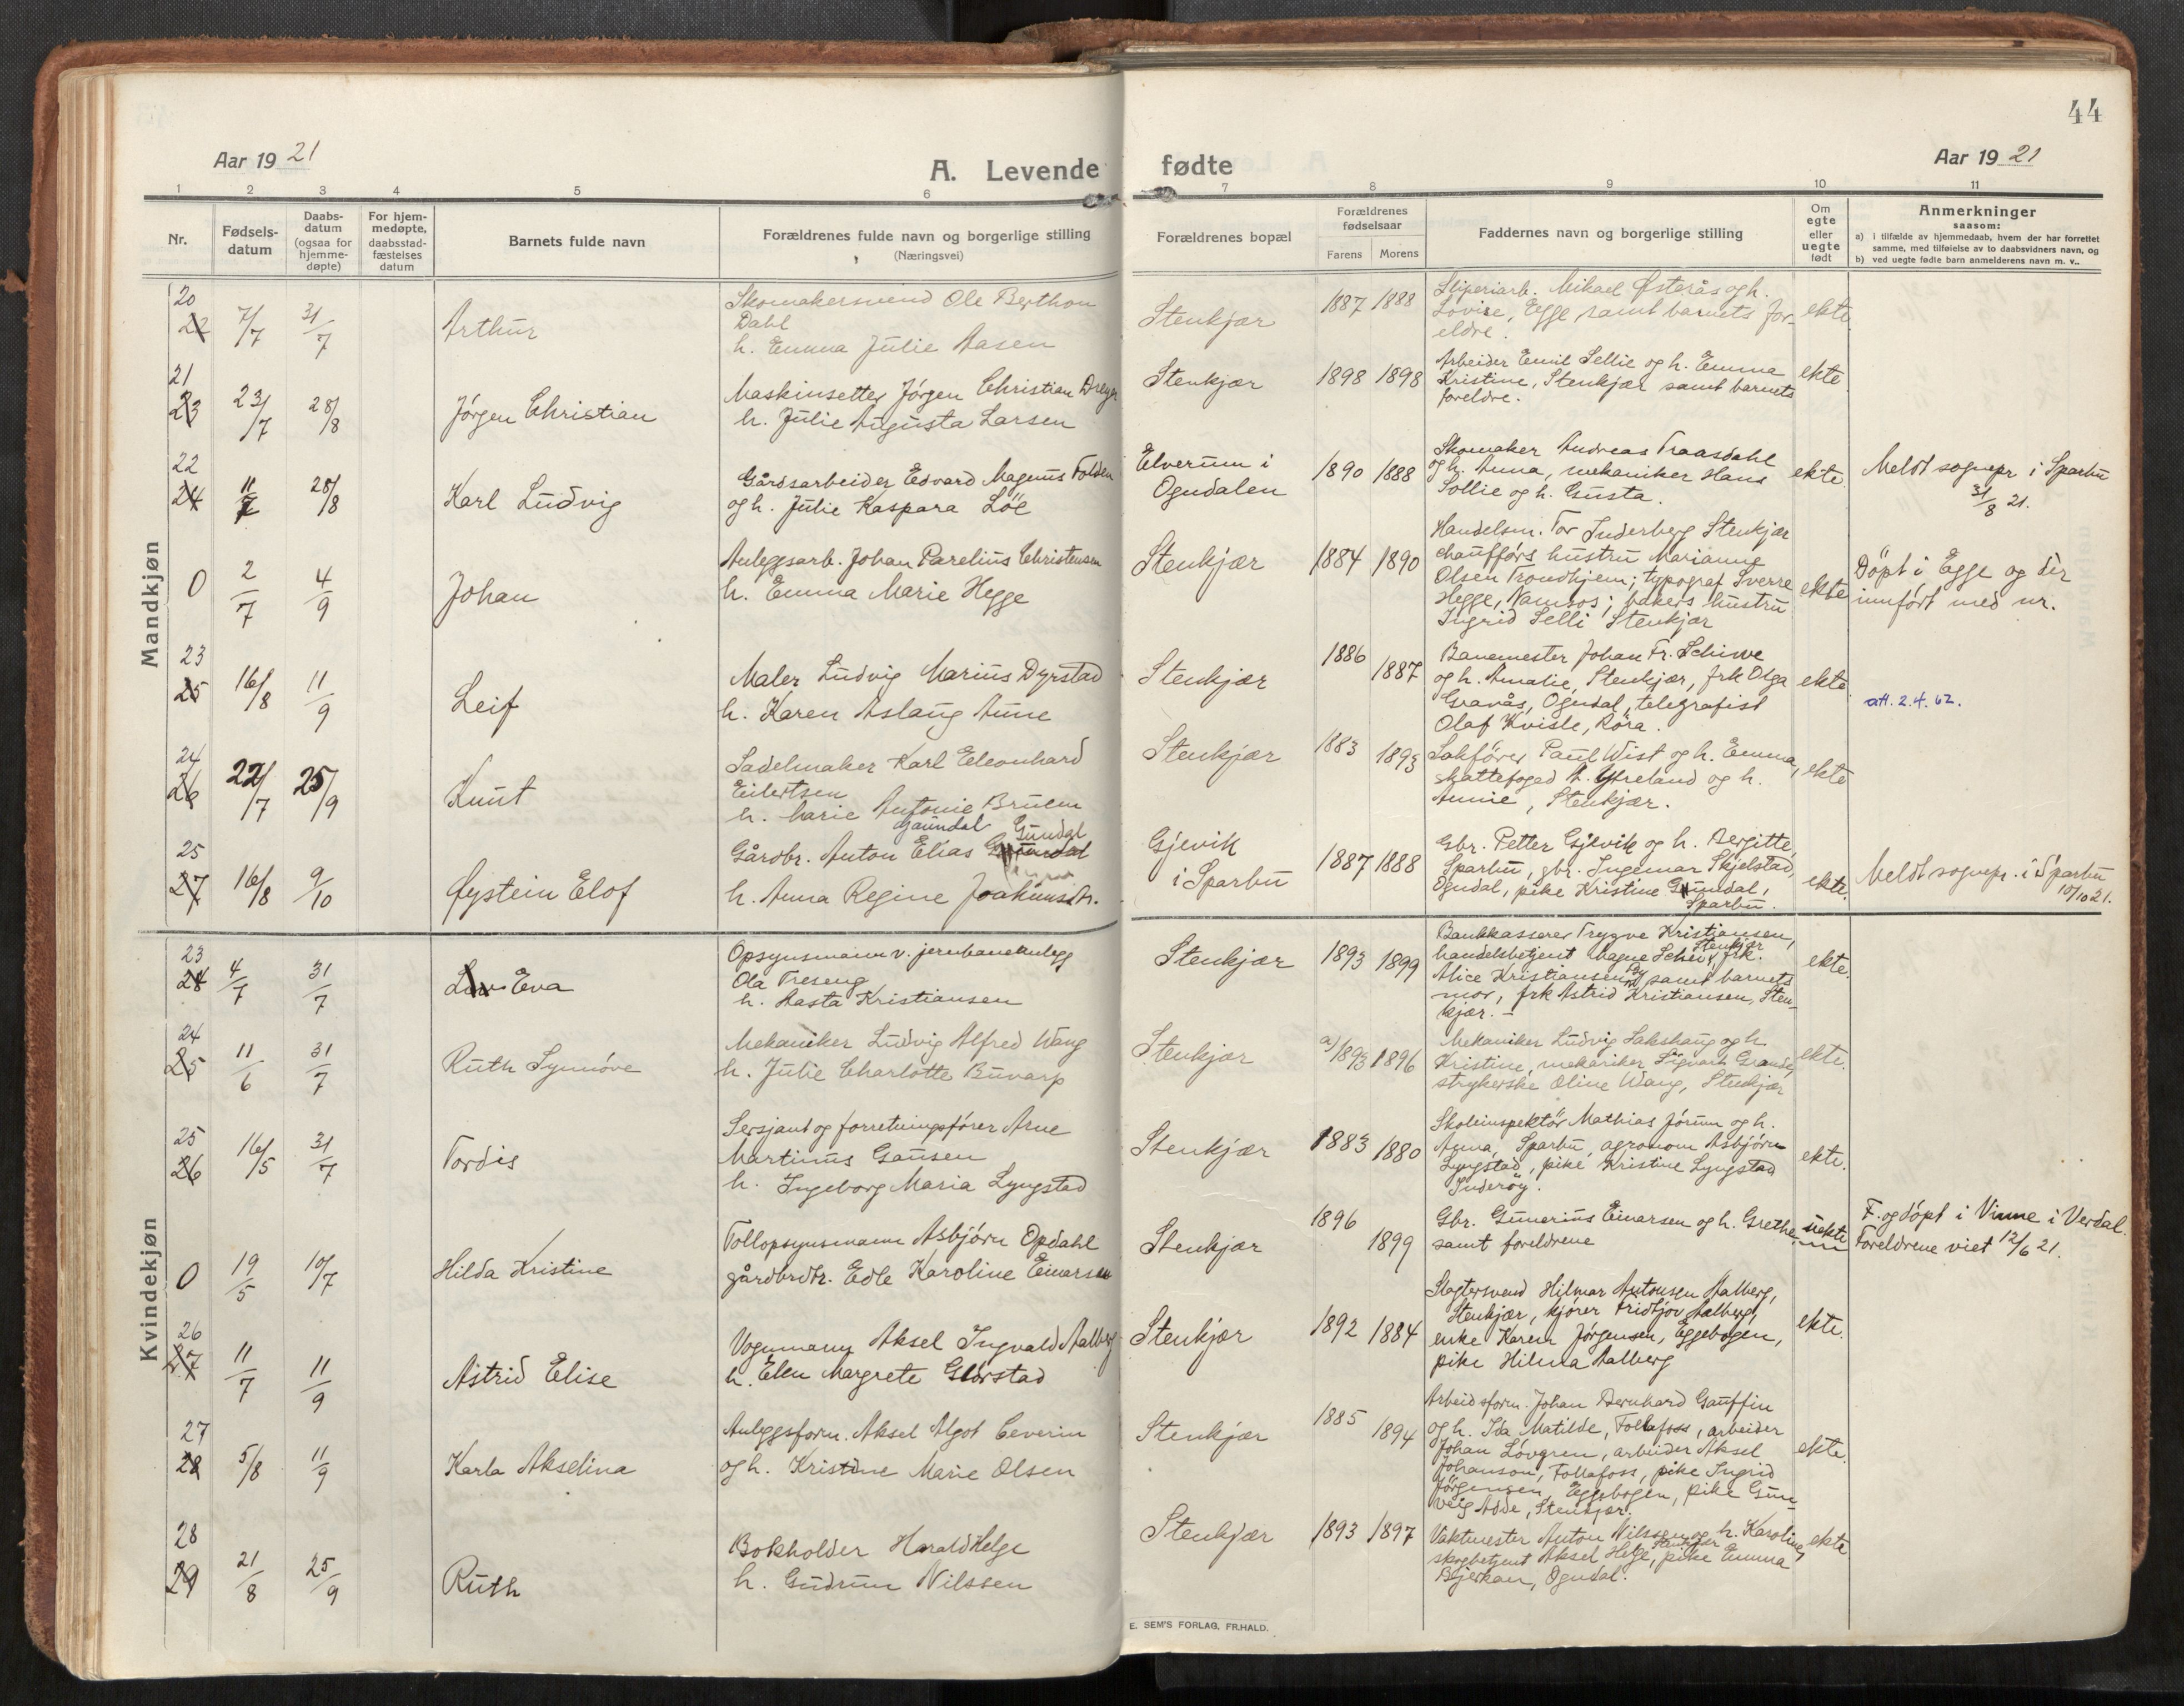 44
Aar 19 21
A. Levende
fødte
Aar 19 21
1 2 3 4 5 6 7 8 9 10 11
Nr.
Fødsels-
datum
Daabs-
datum
(ogsaa for
hjemme-
døpte)
For hjem-
medøpte,
daabsstad-
fæstelses
datum
Barnets fulde navn
Forældrenes fulde navn og borgerlige stilling
(Næringsvei)
Forældrenes bopæl
Forældrenes
fødselsaar
Farens Morens
Faddernes navn og borgerlige stilling
Om
egte
eller
uegte
født
Anmerkninger
saasom:
a) i tilfælde av hjemmedaab, hvem der har forrettet
samme, med tilføielse av to daabsvidners navn, og
b) ved uegte fødte barn anmelderens navn m. v..
Mandkjøn
20
22 7/7 31/7 Arthur
Skomakersvend Ole Berthon
Dahl
h. Emma Julie Aasen
Stenkjær 1887 1888
Sliperiarb. Mikael Østerås og h.
Lovise, Egge samt barnets for-
eldre.
ekte.
21
23 23/7 28/8 Jörgen Christian
Maskinsetter Jörgen Christian Dreyer
h. Julie Augusta Larsen
Stenkjær 1898 1898
Arbeider Emil Sellie og h. Emma
Kristine, Stenkjær samt barnets
foreldre.
ekte.
22
24 11/7 28/8 Karl Ludvig
Gårdsarbeider Edvard Magnus Folden
og h. Julie Kaspara Löe
Elverum i
Ogndalen
1890 1888
Skomaker Andreas Traasdahl
og h. Anna, mekaniker Hans
Sollie og h. Gusta.
ekte.
Meldt sognepr. i Sparbu
31/8 21.
0 2/7 4/9 Johan
Anleggsarb. Johan Parelius Christensen
h. Emma Marie Hegge
Stenkjær 1884 1890
Handelsm. Tor Inderberg Stenkjær
chaufførs hustru Marianne
Olsen Trondhjem; typograf Sverre
Hegge, Namsos; bakers hustru
Ingrid Selli Stenkjær
ekte
Döpt i Egge og dér
innfört med nr.
23
25 16/8 11/9 Leif
Maler Ludvig Marius Dyrstad
h. Karen Aslaug Aune
Stenkjær 1886 1887
Banemester Johan Fr. Schive
og h. Amalie, Stenkjær, frk Olga
Gravås, Ogndal, telegrafist
Olaf Kvisle, Röra.
ekte
att. 2.4.62.
24
26 22/7 25/9 Knut
Sadelmaker Karl Eleonhard
Eilertsen
h. Marie Antonie Bruem
Stenkjær 1883 1893
Sakförer Paul Wist og h. Emma,
skattefoged A. Ytreland og h.
Annie, Stenkjær.
ekte
25
27 16/8 9/10 Øystein Elof
Gaundal Gundal
Gårdbr. Anton Elias
h. Anna Regine Joakimsdtr.
Gjevik
i Sparbu
1887 1888
Gbr. Petter Gjevik og h. Bergitte,
Sparbu, gbr. Ingemar Skjelstad,
Ogndal, pike Kristine Gundal,
Sparbu.
ekte.
Meldt sognepr. i Sparbu
10/10 21.
Kvindekjøn
23
24 4/7 31/7 Liv Eva
Opsynsmann v. jernbaneanlegg
Ola Treseng
h. Aasta Kristiansen
Stenkjær 1893 1899
Bankkasserer Trygve Kristiansen,
Stenkjær
handelsbetjent Magne Schei, frk.
Alice Kristiansen samt barnets
mor, frk Astrid Kristiansen, Sten-
kjær. –
ekte.
24
25 11/6 31/7 Ruth Synnöve
Mekaniker Ludvig Alfred Wang
h. Julie Charlotte Buvarp
Stenkjær a) 1893 1896
Mekaniker Ludvig Sakshaug og h.
Kristine, mekaniker Sigvart Grande,
strykerske Oline Wang, Stenkjær
ekte.
25
26 16/5 31/7 Tordis
Sersjant og forretningsförer Arne
Martinus Gausen
h. Ingeborg Maria Lyngstad
Stenkjær 1883 1880
Skoleinspektör Mathias Jörum og h.
Anna, Sparbu, agronom Asbjörn
Lyngstad, pike Kristine Lyngstad
Inderöy.
ekte.
0 19/5 10/7 Hilda Kristine
Tollopsynsmann Asbjörn Opdahl
gårdbrdtr. Edle Karoline Einarsen
Stenkjær 1896 1899
Gbr. Gunerius Einarsen og h. Grethe
samt foreldrene
uekte
F. og döpt i Vinne i Verdal.
Foreldrene viet 12/6 21.
26
27 11/7 11/9 Astrid Elise
Vognmann Aksel Ingvald Aalberg
h. Elen Margrete Glörstad
Stenkjær 1892 1884
Slagtersvend Hilmar Antonsen Aalberg,
Stenkjær, kjörer Fridtjov Aalberg,
enke Karen Jörgensen, Eggebogen,
pike Hilma Aalberg
ekte.
27
28 5/8 11/9 Karla Akselina
Anleggsform. Aksel Algot Ceverin
og h. Kristine Marie Olsen
Stenkjær 1885 1894
Arbeidsform. Johan Bernhard Gauffin
og h. Ida Matilde, Follafoss, arbeider
Johan Lövgren, arbeider Aksel
Johanson, Follafoss, pike Ingrid
Jörgensen, Eggebogen, pike Gun-
veig Adde, Stenkjær.
ekte.
28
29 21/8 25/9 Ruth
Bokholder Harald Helge
h. Gudrun Nilssen
Stenkjær 1893 1897
Vaktmester Anton Nilssen og h. Karoline,
Stenkjær
skogbetjent Aksel Helge, pike Emma
Bjerkan, Ogndal.
ekte
E. SEM'S FORLAG, FR.HALD.